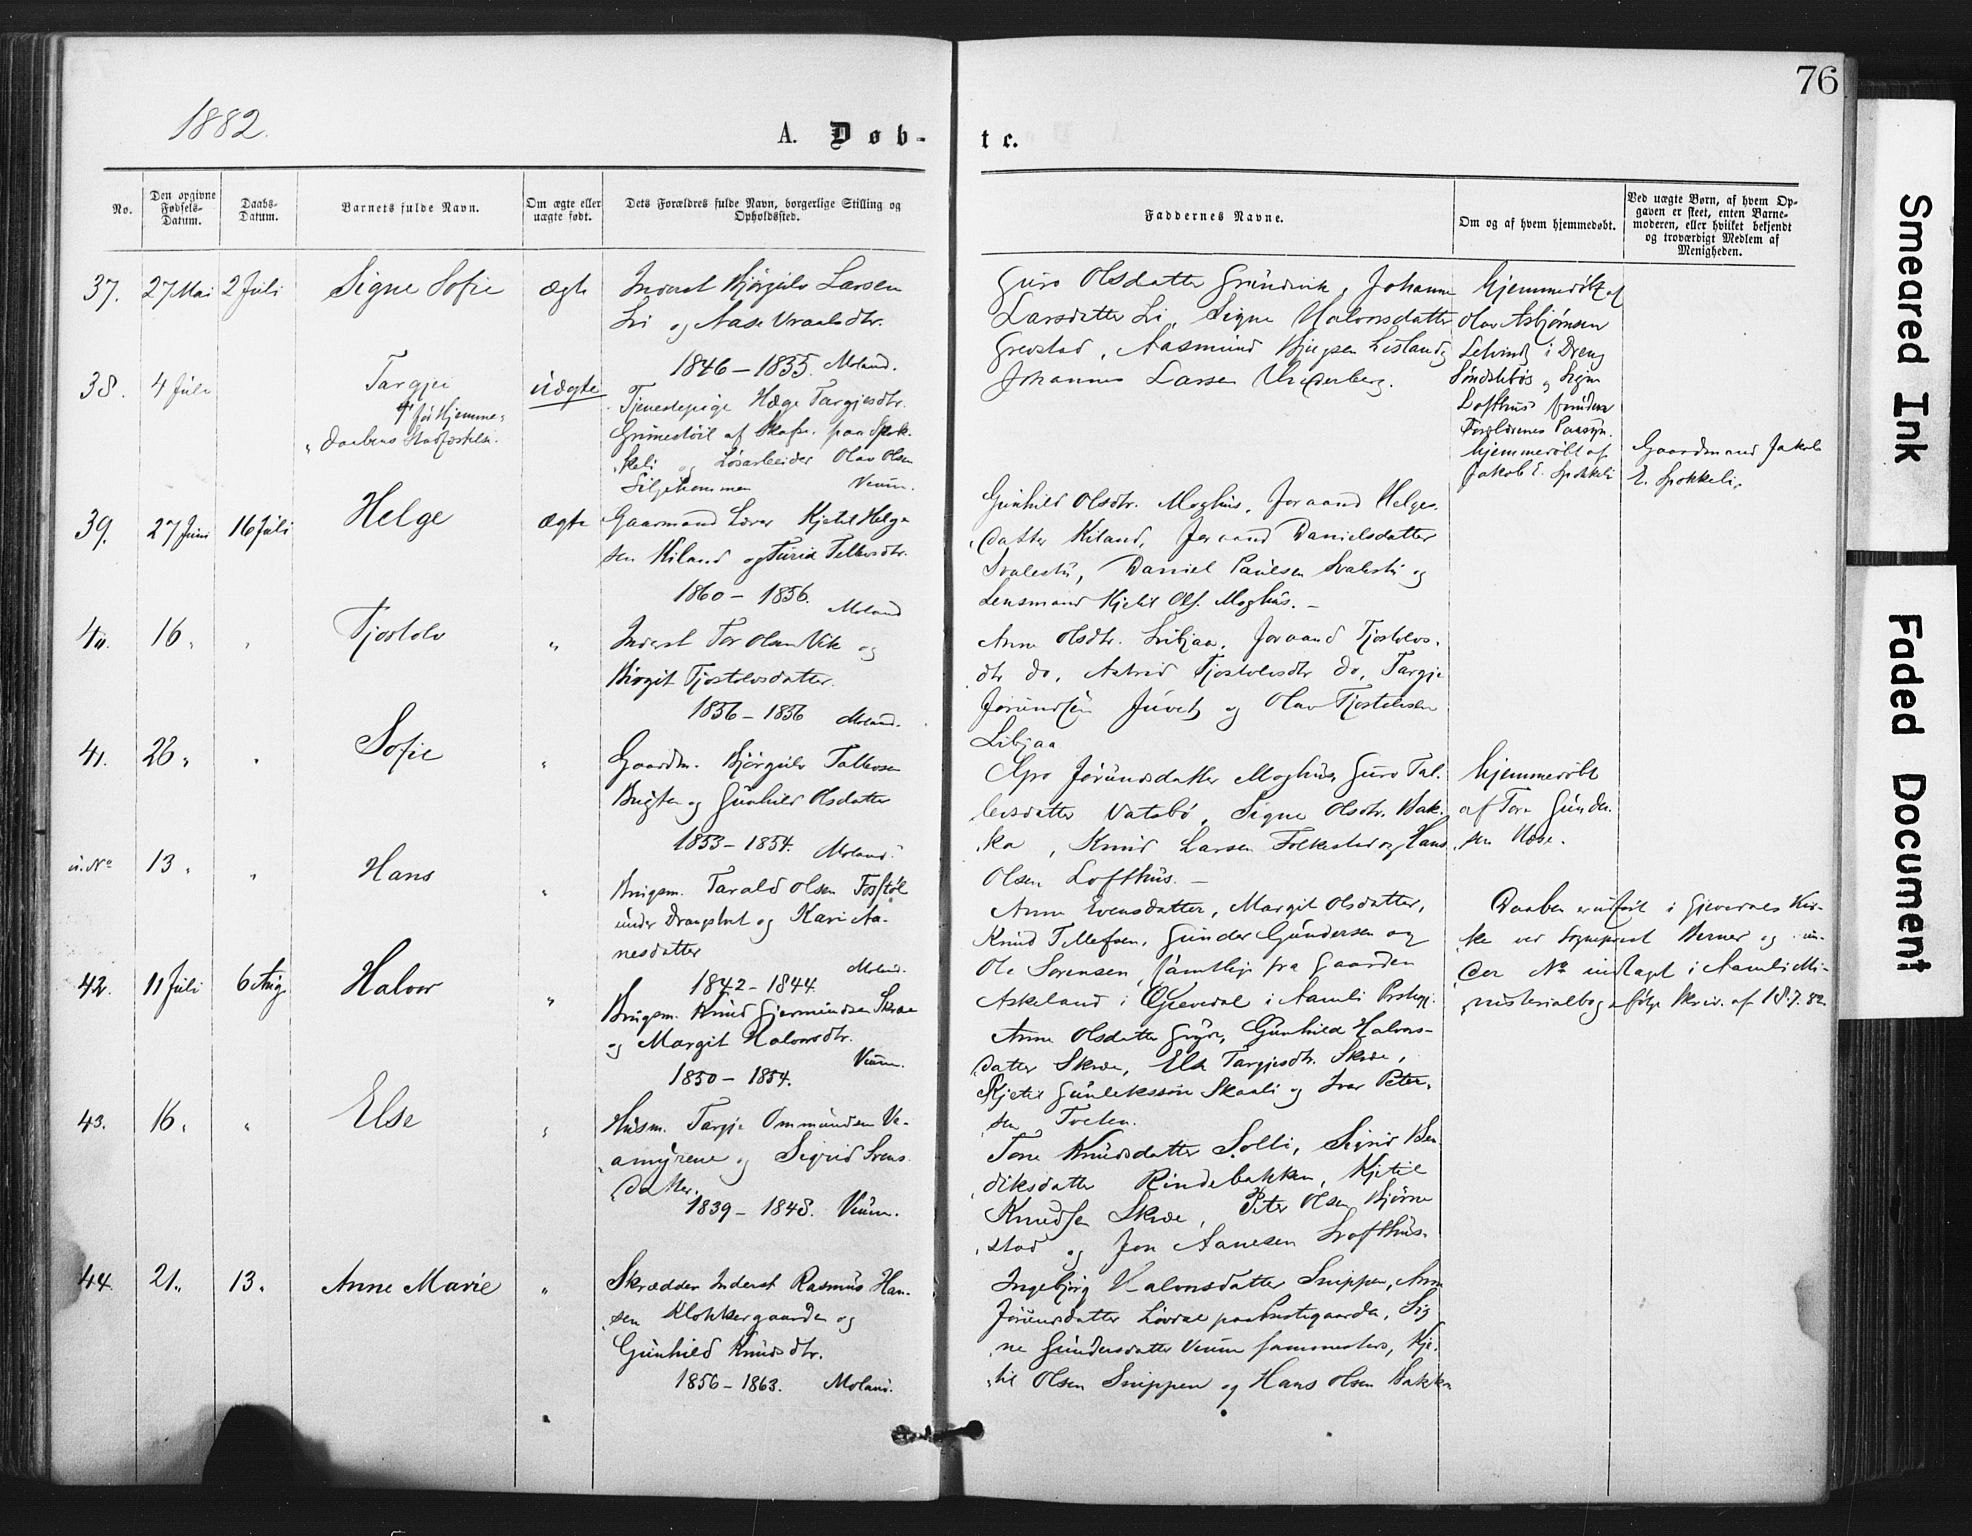 76
1882.
A. Døb-
te.
No.
Den opgivne
Fødsels-
Datum.
Daabs-
Datum.
Barnets fulde Navn.
Om ægte eller
uægte født.
Dets Forældres fulde Navn, borgerlige Stilling og
Opholdssted.
Faddernes Navne.
Om og af hvem hjemmedøbt.
Ved uægte Børn, af hvem Op-
gaven er skeet, enten Barne-
moderen, eller hvilket bekjendt
og troværdigt Medlem af
Menigheden.
37. 27 Mai 2 Juli Signe Sofie ægte
Inderst Bjørgulv Larsen
Li og Aase Vraalsdtr.
1846 – 1855. Moland.
Guro Olsdatter Grundvik, Johanne
Larsdatter Li, Signe Halvorsdatter
Grevstad, Aasmund
Johannes Larsen
Hjemmedøbt af
Olav Asbjørnsen
i Dreng
og Signe
Lofthus
Forældrenes Paasyn.
38. 4 Juli Targjei uægte
før Hjemme-
daabens Stadfæstelse.
Tjenestepige Hæge Targjesdtr.
Grimestøil af Skafse. paa Spok-
keli og Løsarbeider Olav Olsen
Veum.
Hjemmedøbt af
Jakob E. Spokkeli
Gaardmand Jakob
E. Spokkeli.
39. 27 Juni 16 Juli Helge ægte
Gaarmand Lærer Kjetil Helge
sen Kiland og Turid Tellevsdtr.
1860 – 1856. Moland
Gunhild Olsdtr. Moghus, Joraand Helges-
datter Kiland, Joraand Danielsdatter
Svalestu, Daniel Paulsen Svalestu og
Lensmand Kjetil Ols. Moghus. –
40. 16 " " Tjostolv "
Inderst Tor Olsen Vik og
Birgit Tjostolvsdatter.
1856 – 1856 Moland.
Anne Olsdtr. Libjaa, Joraand Tjostolvs-
dtr do, Astrid Tjostolvsdtr do, Targje
Jørundsen Juvet og Olav Tjostolvsen
Libjaa
41. 28 " " Sofie "
Gaardm. Bjørgulv Tallevsen
og Gunhild Olsdatter
1853 – 1854. Moland.
Jørundsdatter Moghus, Guro Tal-
levsdatter Vatsbø, Signe Olsdtr. Bak-
ka, Knud Larsen Folkestad og Hans
Olsen Lofthus. –
Hjemmedøbt
af Tore Gunder-
sen
u. No 13 " " Hans "
Brugsm. Tarald Olsen
under Drangsbut og Kari Aa-
nesdatter
1842 – 1844 Moland.
Anne Evensdatter, Margit Olsdatter,
Knud Tellefsen, Gunder Gundersen og
Ole Sørensen, samtlige fra Gaarden
Askeland i Gjevedal i Aamli Prstgj.
Daaben er udført i Gjevedals Kir-
ke ved Sogneprest Berner og un-
der No indtaget i Aamli Mi-
nisterialbog ifølge Skriv. af 18.7.82
42. 11 Juli 6 Aug. Halvor "
Brugsm. Knud Gjermundsen Skree
og Margit Halvorsdtr.
1850 – 1854. Veum.
Anne Olsdatter Gryve, Gunhild Halvors-
datter Skree, Else Targjesdtr. Skree,
Kjetil Gunleksøn Skaali og Ivar Peter-
sen Tveten.
43. 16 " " Else "
Husm. Targje Ommundsen Ve-
amyrene og Sigrid Svens-
datter.
1839 – 1848. Veum.
Tone Knudsdatter Solli, Sigrid Ben-
diksdatter Rindebakken, Kjetil
Knudsen Skree, Peter Olsen Bjørne
stad og Jon Aanesen Lofthus.
44. 21 " 13 " Anne Marie "
Skrædder Inderst Rasmus Han-
sen Klokkergaarden og
Gunhild Knudsdtr.
1856 – 1863. Moland.
Ingebjørg Halvorsdatter Snippen, Anne
Jørundsdatter Lovdal paa Prestegaarden, Sig
ne Gundersdatter Veum sammesteds, Kje-
til Olsen Snippen og Hans Olsen Bakka
Smeared Ink
Faded Document